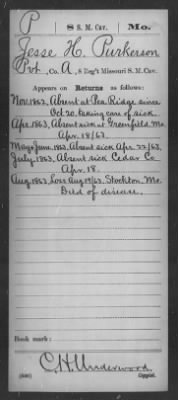 P 8 S. M. Cav. Mo.
Jesse H. Purkerson
Pvt, Co. A, 8 Reg't Missouri S. M. Cav.
Appears on Returns as follows:
Nov. 1862, Absent at Pea Ridge since
Oct 20, taking care of sick.
Apr. 1863, Absent sick at Greenfield Mo.
Apr. 18/63.
May & June, 1863, Absent sick Apr. 22/63,
July, 1863, Absent sick Cedar Co
Apr. 18.
Aug. 1863, Loss Aug 19/63, Stockton, Mo.
Died of disease.
Book mark:
C. H. Underwood
Copyist.